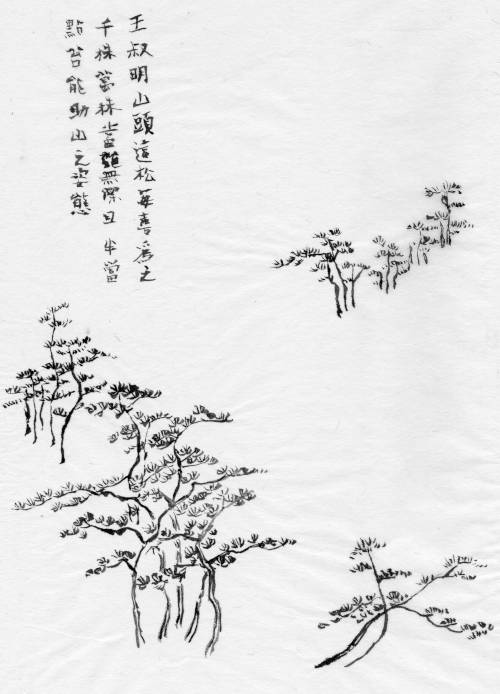 王叔明山頭遠松每喜為之
千株萬株無際且半當
點苔能助山之姿態